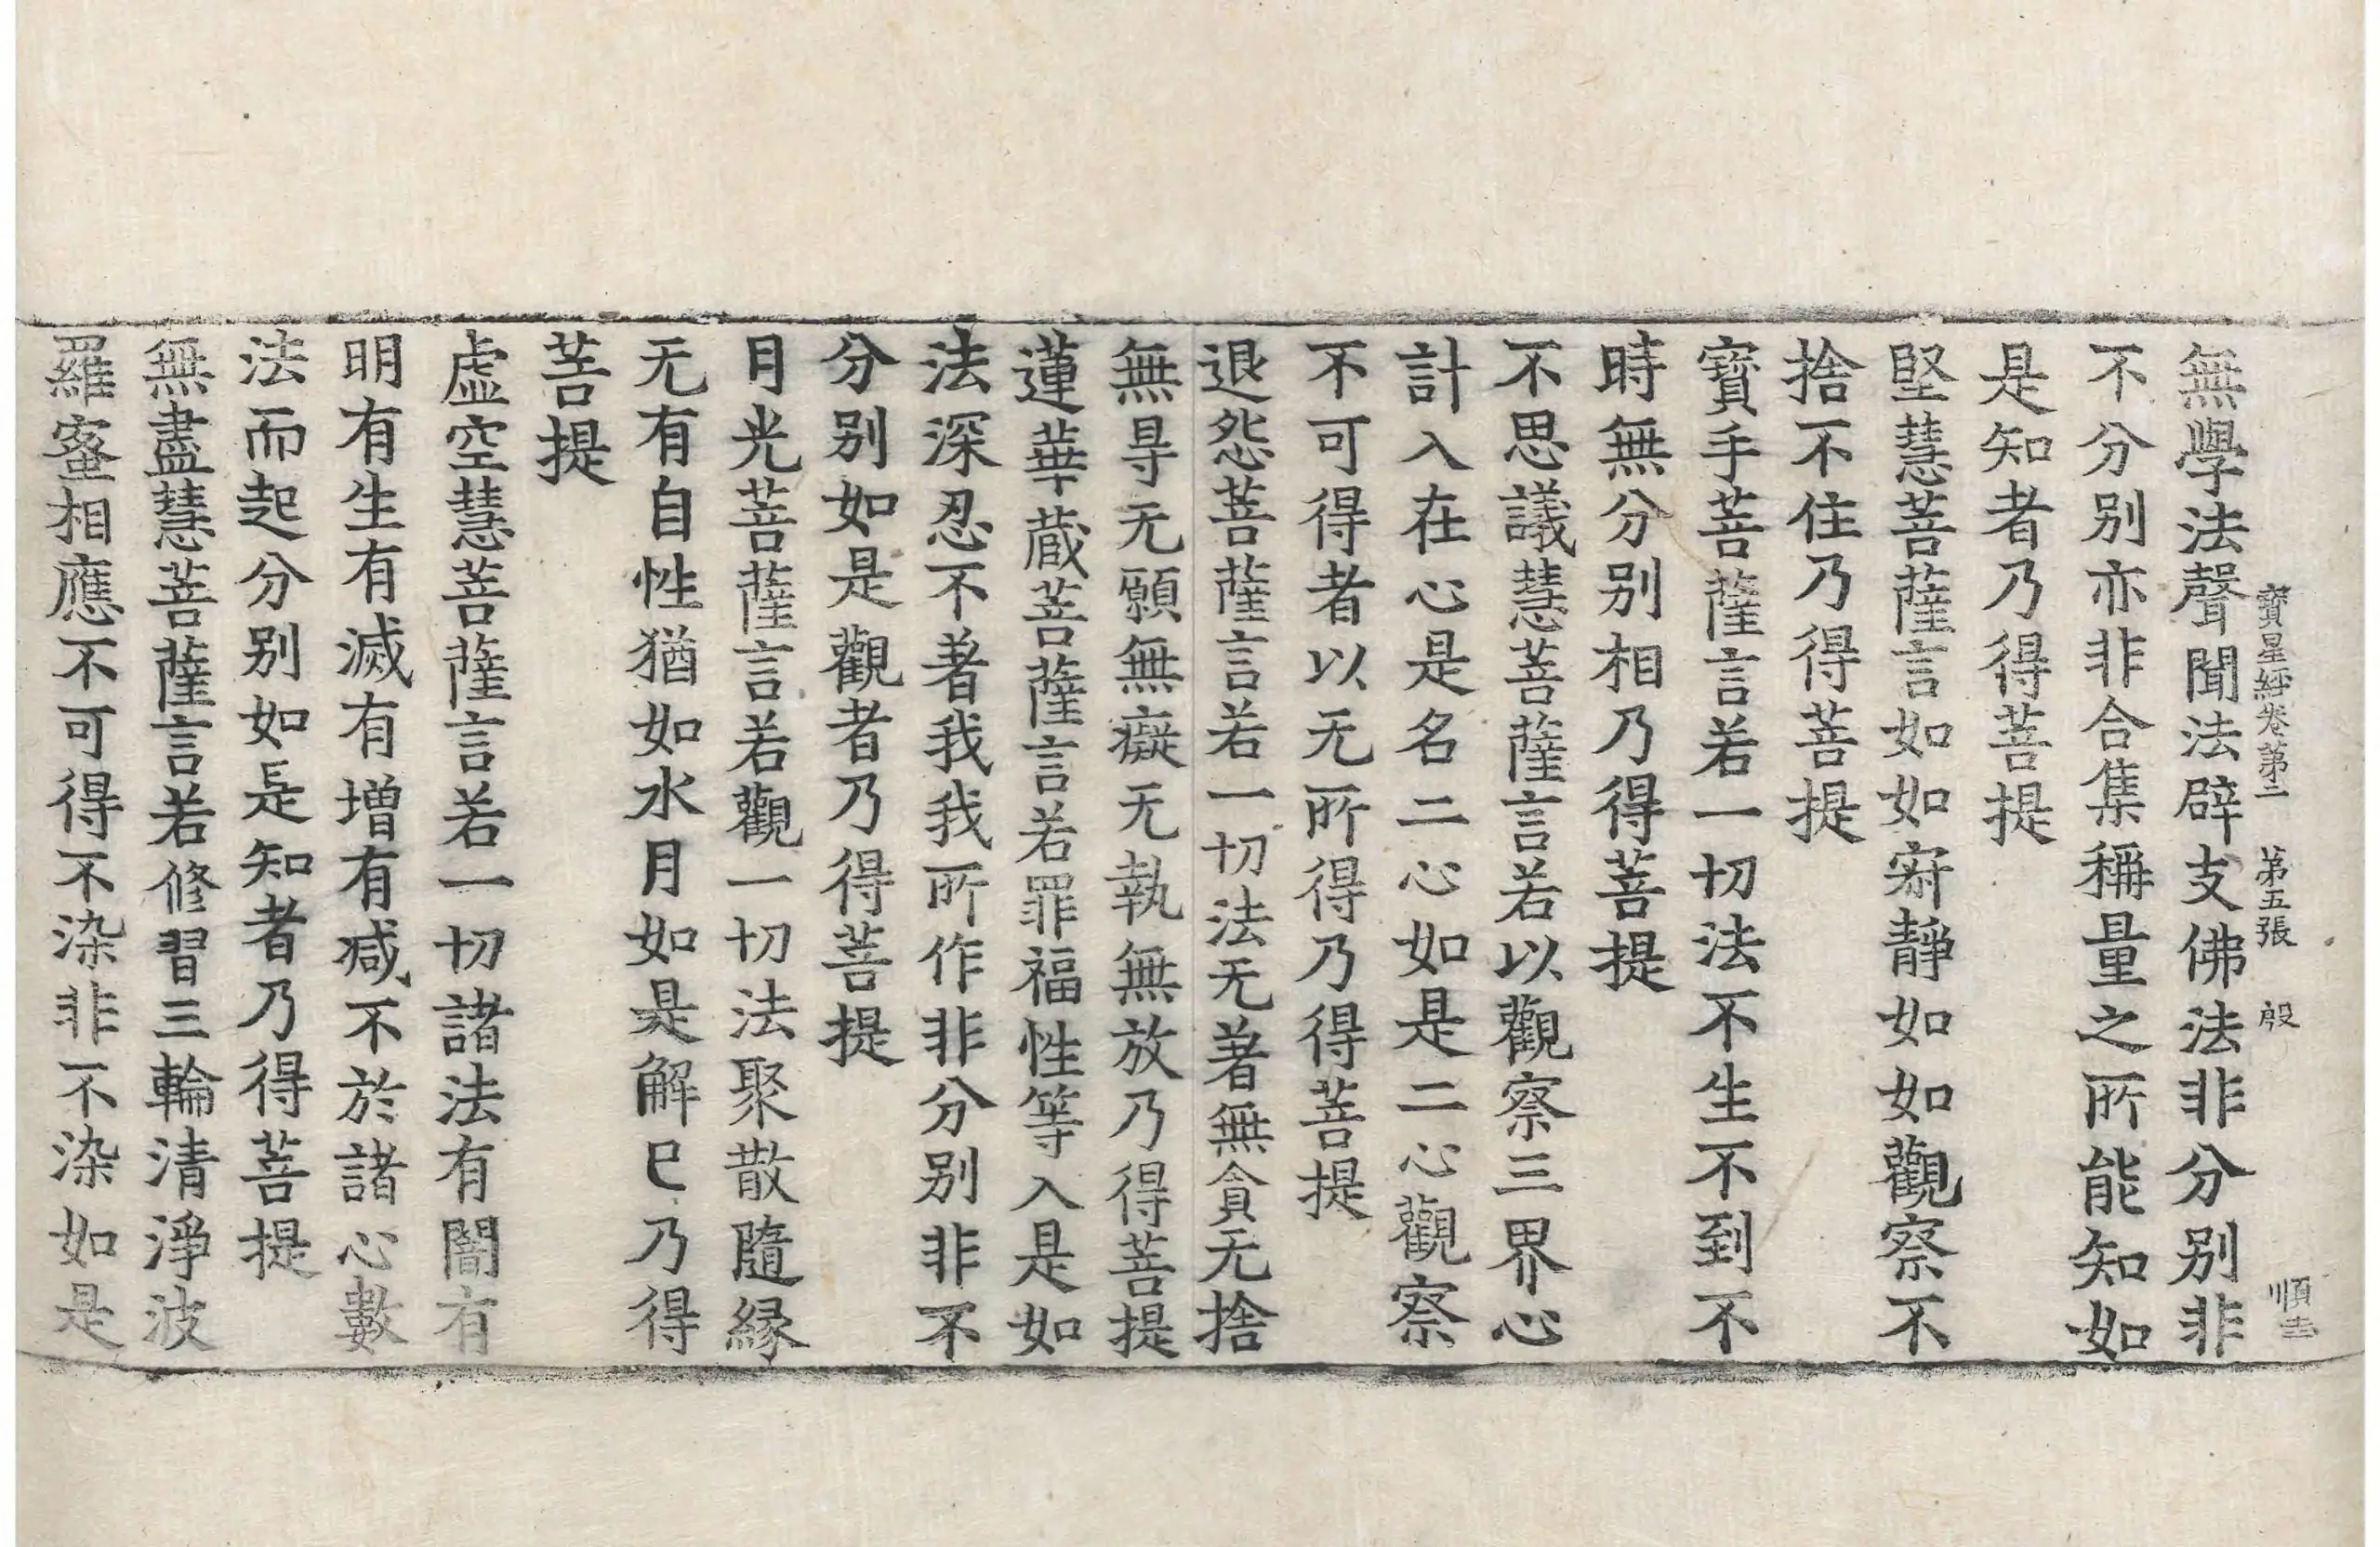 寶星經卷第二 第五張 殷
無學法聲聞法辟支佛法非分別非
不分別亦非合集稱量之所能知如
是知者乃得菩提
堅慧菩薩言如如寂靜如如觀察不
捨不住乃得菩提
寶手菩薩言若一切法不生不到不
時無分別相乃得菩提
不思議慧菩薩言若以觀察三界心
計入在心是名二心如是二心觀察
不可得者以无所得乃得菩提
退怨菩薩言若一切法无著無貪无捨
無㝵无願無癡无執無放乃得菩提
蓮華蔵菩薩言若罪福性等入是如
法深忍不著我我所作非分別非不
分別如是觀者乃得菩提
月光菩薩言若觀一切法聚散隨縁
无有自性猶如水月如是解已乃得
菩提
虛空慧菩薩言若一切諸法有闇有
明有生有滅有增有减不於諸心數
法而起分別如是知者乃得菩提
無盡慧菩薩言若修習三輪清淨波
羅蜜相應不可得不染非不染如是